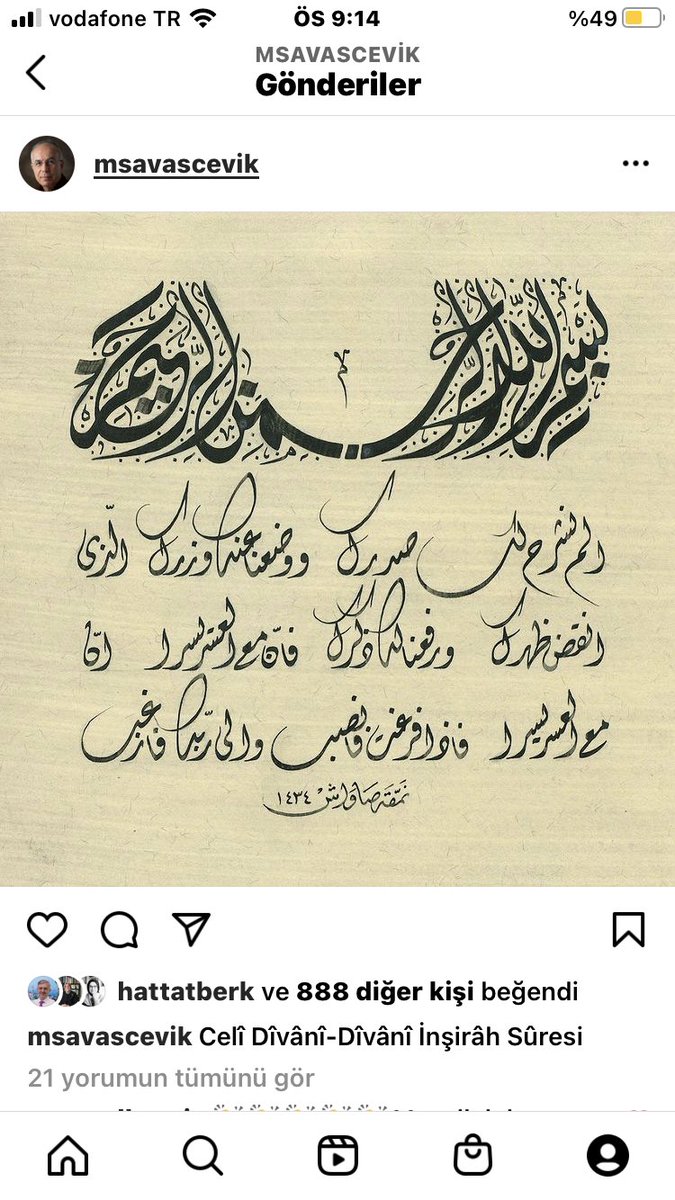 vodafone TR ÖS 9:14 %49
MSAVASCEVİK
Gönderiler
msavascevik
بسم الله الرحمن الرحيم
الم نشرح لك صدرك ووضعنا عنك وزرك الّذى
انقض ظهرك ورفعنا لك ذكرك فانّ مع العسر يسرا انّ
مع العسر يسرا فاذا فرغت فانصب والى ربّك فارغب
نمّقه صاواش ١٤٣٤
hattatberk ve 888 diğer kişi beğendi
msavascevik Celî Dîvânî-Dîvânî İnşirâh Sûresi
21 yorumun tümünü gör